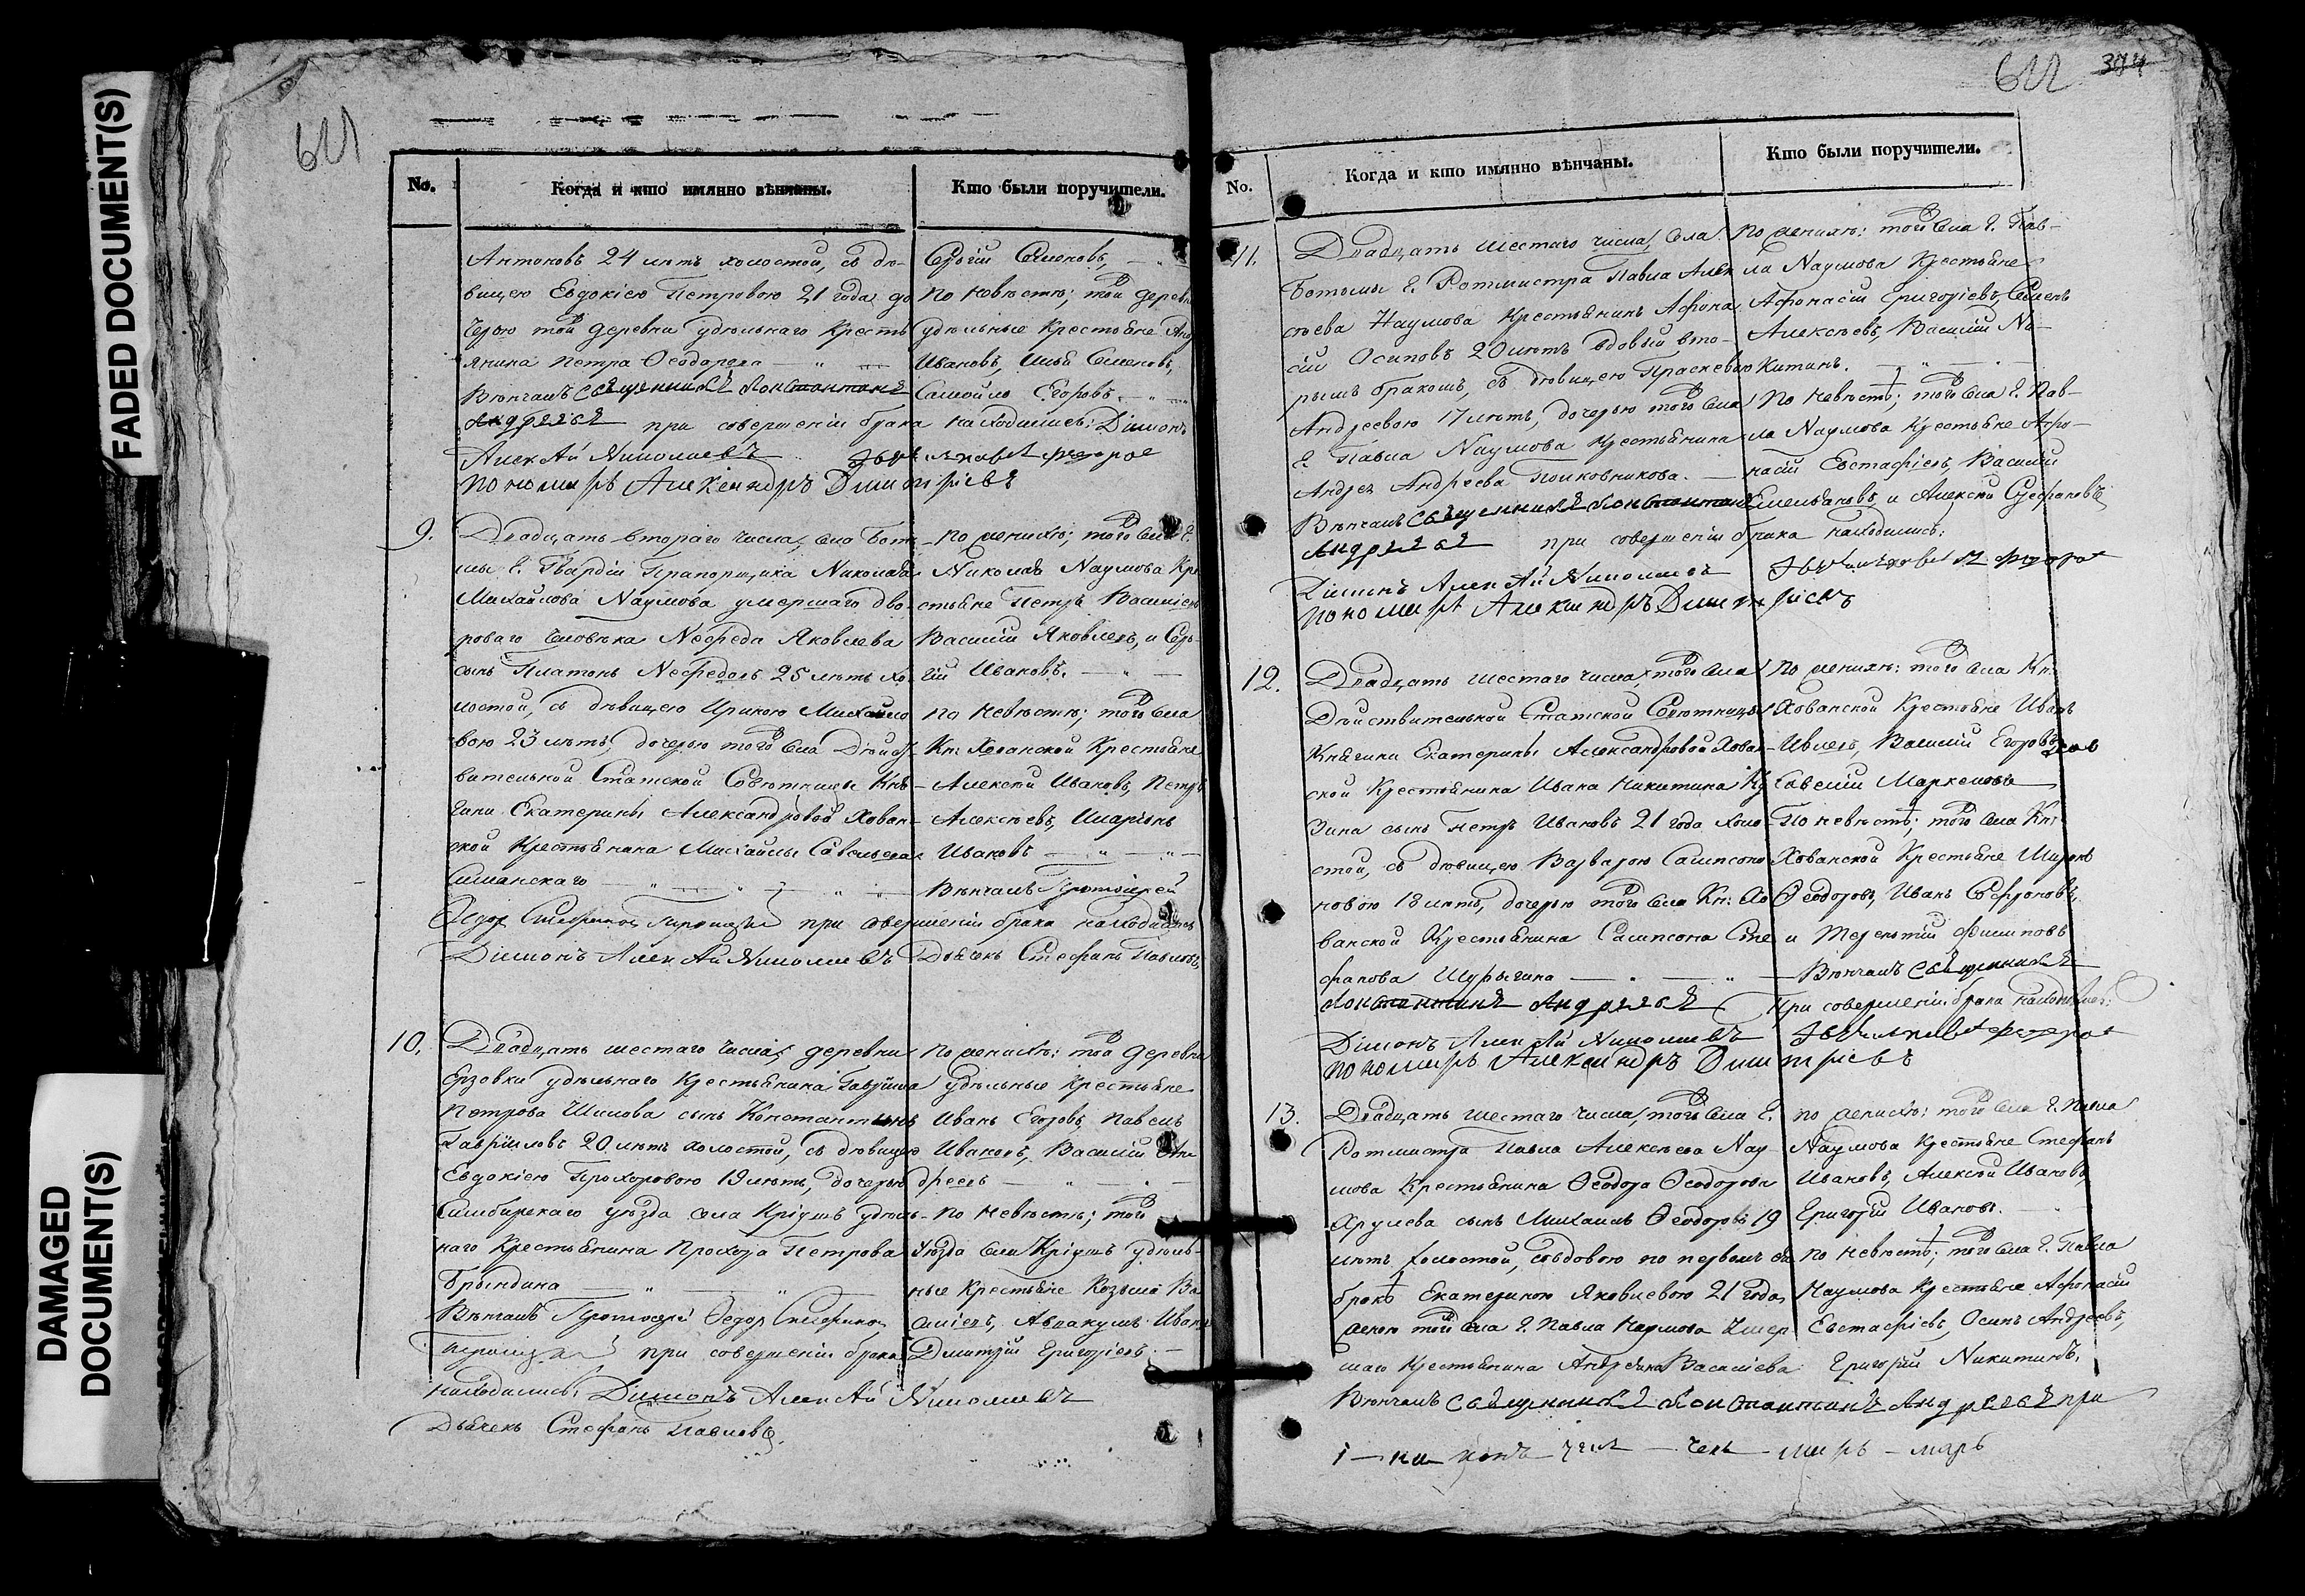 FADED DOCUMENT(S)
DAMAGED
DOCUMENT(S)
611
No.
Когда и кто имянно вѣнчаны.
Кто были поручители.
Антоновъ 24 лѣтъ холостой, съ дѣ-
вицею Евдокіею Петровою 21 года до
черью той деревни удѣльнаго кресть
янина Петра Ѳеодорова
Вѣнчалъ Священникъ Константинъ
Андреевъ при совершеніи брака находились: Діаконъ
Алексѣй Николаевъ
пономарь Александръ Димитріевъ
Сергій Семеновъ,
По невѣстѣ; той деревни
удѣльные крестьяне
Ивановъ, Илья Семеновъ,
Самойло Егоровъ.
9.
Двадцать втораго числа, села Боть
мы Г. Гвардіи Прапорщика Николая
Михайлова Наумова умершаго дво-
роваго человѣка Нефеда Яковлева
сынъ Платонъ Нефедовъ 25 лѣтъ хо-
лостой, съ дѣвицею Ириною Михайло
вою 23 лѣтъ, дочерью того села Дѣйст
вительной Статской Совѣтницы Кня
гини Екатерины Александровой Хован-
ской Крестьянина Михайлы Савельева
Симанскаго
при совершеніи брака находились
Діаконъ Алексѣй Николаевъ Дьячекъ Стефанъ Павловъ
По женихѣ; того села Г.
Николая Наумова Кре
стьяне Петръ Василіевъ
Василій Яковлевъ, и Сер-
гій Ивановъ.
по невѣстѣ; того села
Кн: Хованской Крестьяне
Алексѣй Ивановъ, Петръ
Алексѣевъ, Иларіонъ
Ивановъ
Вѣнчалъ Протоіерей
10.
Двадцать шестаго числа, деревни
Ерзовки удѣльнаго Крестьянина Гаврила
Петрова Шилова сынъ Константинъ
Гавриловъ 20 лѣтъ холостой, съ дѣвицею
Евдокіею Прохоровою 19 лѣтъ, дочерью
Симбирскаго уѣзда села Кріушъ удѣль-
наго Крестьянина Прохора Петрова
Брындина
Вѣнчалъ Протоіерей Ѳедор
при совершеніи брака
находились: Діаконъ Алексѣй Николаевъ
Дьячекъ Стефанъ Павловъ.
по женихѣ: той деревни
удѣльные крестьяне
Иванъ Егоровъ, Павелъ
Ивановъ, Василій Ан
дреевъ
по невѣстѣ; того
уѣзда села Кріушъ удѣль-
ные Крестьяне Козьма Ва
силіевъ, Авакумъ Иванъ
Дмитрій Григоріевъ.
612 374
No.
Когда и кто имянно вѣнчаны.
Кто были поручители.
11.
Двадцать шестаго числа, села
Ботьмы Г. Ротмистра Павла Алек
сѣева Наумова Крестьянинъ Афана
сій Осиповъ 20 лѣтъ вдовый вто-
рымъ бракомъ, съ дѣвицею Праскевою
Андреевою 17 лѣтъ, дочерью того села
Г. Павла Наумова Крестьянина
Андрея Андреева Полковникова.
Вѣнчалъ Священникъ Константинъ
Андреевъ при совершеніи брака находились:
Діаконъ Алексѣй Николаевъ
пономарь Александръ Димитріевъ
По женихѣ: того села Г. Пав-
ла Наумова Крестьяне
Афонасій Григоріевъ, Семенъ
Алексѣевъ, Василій Ни-
китинъ.
По невѣстѣ; того села Г. Пав-
ла Наумова Крестьяне Афо-
насій Евстафіевъ, Василій
Емельяновъ и Алексѣй Стефановъ
12.
Двадцать шестаго числа, того села
Дѣйствительной Статской Совѣтницы
Княгини Екатерины Александровой Хован-
ской Крестьянина Ивана Никитина Ку
зина сынъ Петръ Ивановъ 21 года холо-
стой, съ дѣвицею Варварою Сампсоно
новою 18 лѣтъ, дочерью того села Кн: Хо
ванской Крестьянина Сампсона Сте
фанова Шурыгина
Вѣнчалъ Священникъ
Константинъ Андреевъ при совершеніи брака находились:
Діаконъ Алексѣй Николаевъ
пономарь Александръ Димитріевъ
По женихѣ: того села Кн:
Хованской Крестьяне Иванъ
Ивлевъ, Василій Егоровъ
Савелій Маркеловъ
По невѣстѣ; того села Кн:
Хованской Крестьяне Миронъ
Ѳеодоровъ, Иванъ Софроновъ,
и Терентій Филиповъ
13.
Двадцать шестаго числа, того села Г.
Ротмистра Павла Алексѣева Нау-
мова Крестьянина Ѳеодора Ѳеодорова
Хрулева сынъ Михаилъ Ѳеодоровъ 19
лѣтъ холостой, со вдовою по первомъ ея
бракѣ Екатериною Яковлевою 21 года,
женою того села Г. Павла Наумова умер
шаго Крестьянина Андреяна Василіева
Вѣнчалъ Священникъ Константинъ Андреевъ при
по женихѣ: того села Г. Павла
Наумова Крестьяне Стефанъ
Ивановъ, Алексѣй Ивановъ,
Григорій Ивановъ.
по невѣстѣ; того села Г. Павла
Наумова Крестьяне Афонасій
Евстафіевъ, Осипъ Андреевъ,
Григорій Никитинъ.